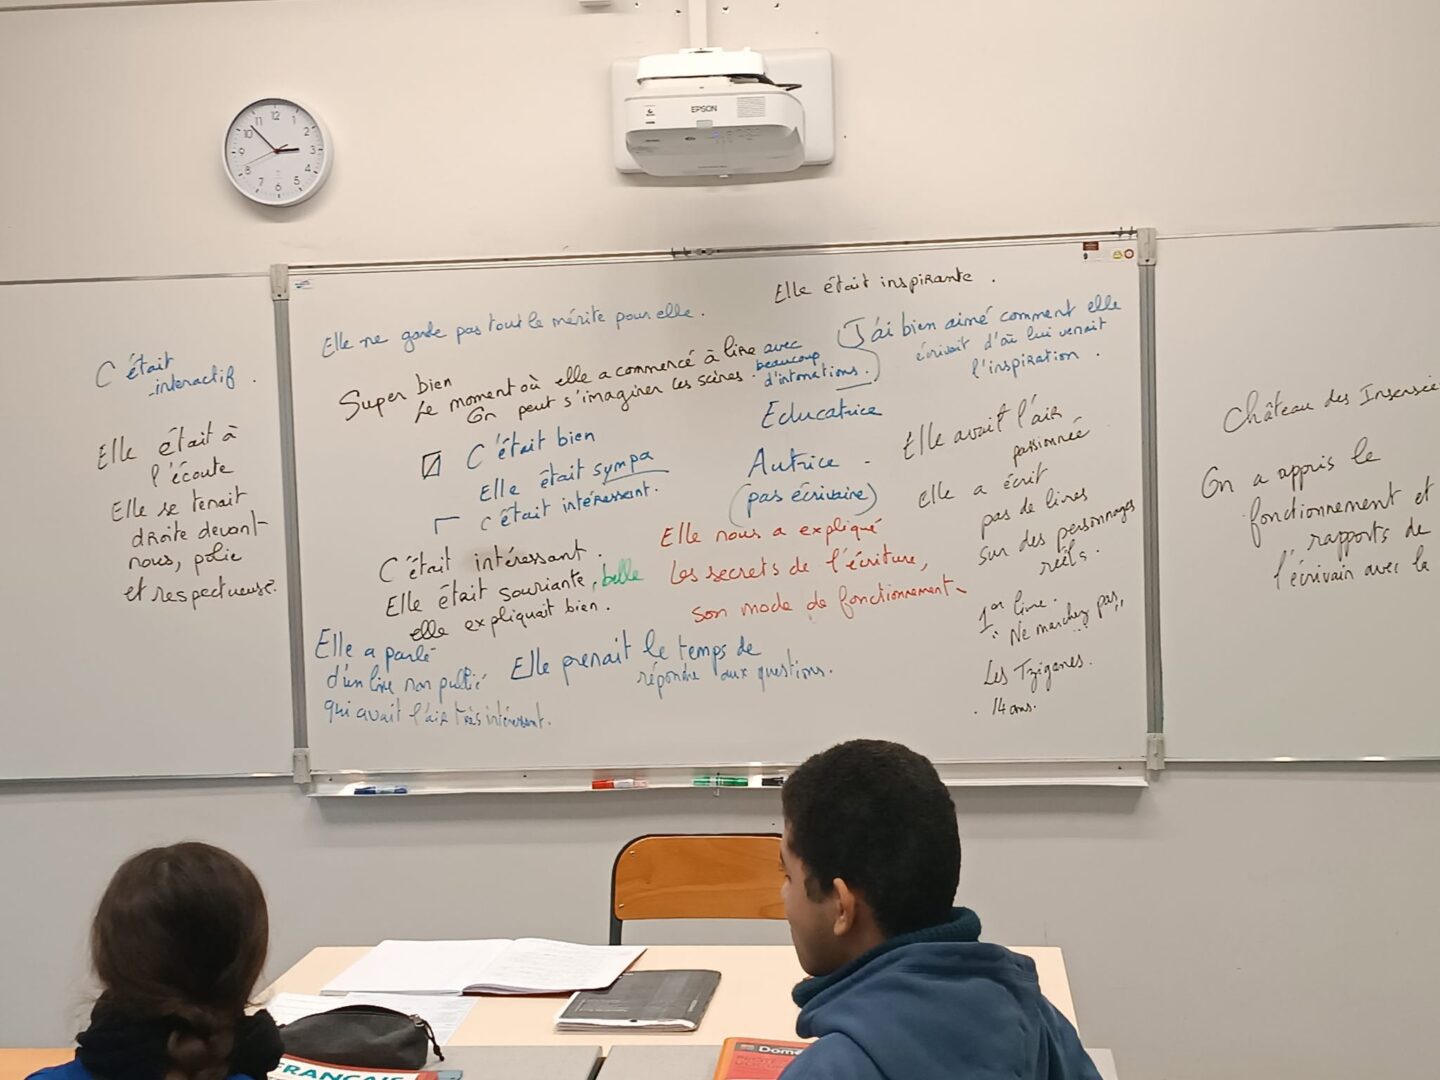 12
11
1
10
2
9
3
8
4
7
5
6
EPSON
C'était
interactif.
Elle était à
l'écoute
Elle se tenait
droite devant
nous, polie
et respectueuse.
Elle ne garde pas tout le mérite pour elle.
Super bien
Le moment où elle a commencé à lire avec
beaucoup
d'intonations.
On peut s'imaginer les scènes.
C'était bien
Elle était sympa
c'était intéressant.
C'était intéressant.
Elle était souriante, belle
elle expliquait bien.
Elle a parlé
d'un livre non publié
qui avait l'air très intéressant.
Elle prenait le temps de
répondre aux questions.
Elle était inspirante.
J'ai bien aimé comment elle
écrivait d'où lui venait
l'inspiration.
Educatrice
Autrice
(pas écrivaire)
Elle nous a expliqué
Les secrets de l'écriture,
son mode de fonctionnement
Elle avait l'air
passionnée
elle a écrit
pas de livres
sur des personnages
réels.
1er livre.
"Ne marchez pas"
Les Tziganes.
14 ans.
Château des Insensée
On a appris le
fonctionnement et
rapports de
l'écrivain avec la
FRANÇAIS